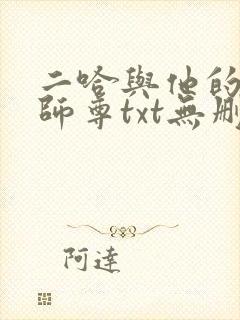 二哈與他的
師尊txt無刪
阿達